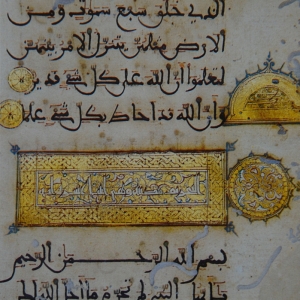 الذي خلق سبع سموت ومن
الارض مثلهن يتنزل الامر بينهن
لتعلموا ان الله على كل شىء قدير
وان الله قد احاط بكل شىء علما
بسم الله الرحمن الرحيم
يايها النبى لم تحرم ما احل الله لك